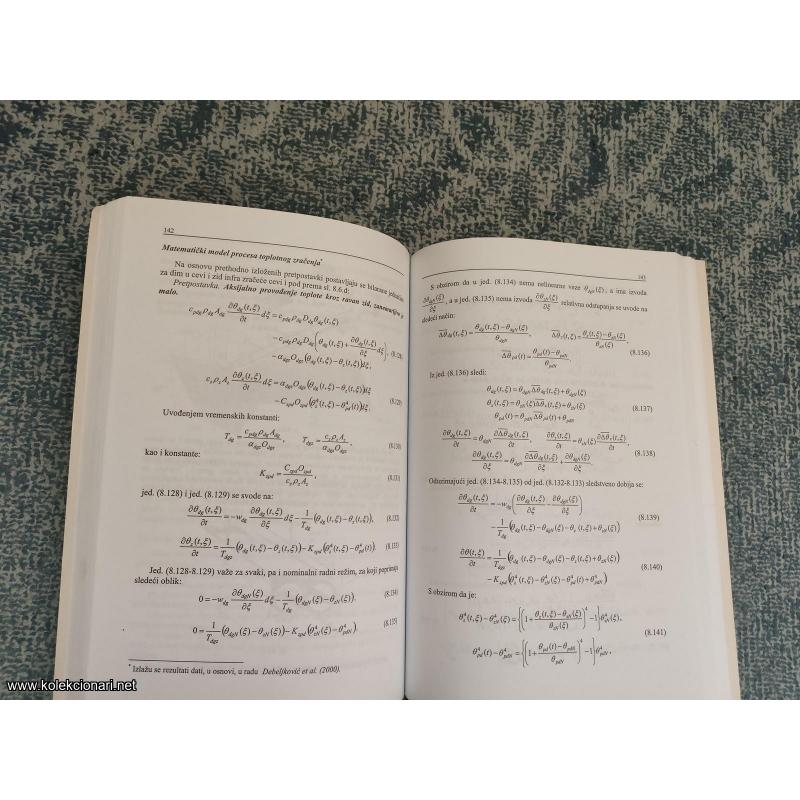 142
Matematički model procesa toplotnog zračenja*
Na osnovu prethodno izloženih pretpostavki postavljaju se bilansne jednačine
za dim u cevi i zid infra zračeće cevi i pod prema sl. 8.6.d:
Pretpostavka. Aksijalno provođenje toplote kroz ravan zid, zanemarljivo je
malo.
c_pdg ρ_dg A_dg ∂θ_dg(t,ξ)/∂t dξ = c_pdg ρ_dg D_dg θ_dg(t,ξ)
− c_pdg ρ_dg D_dg (θ_dg(t,ξ) + ∂θ_dg(t,ξ)/∂ξ dξ), (8.128)
− α_dgz O_dgz (θ_dg(t,ξ) − θ_z(t,ξ))dξ
c_z ρ_z A_z ∂θ_z(t,ξ)/∂t dξ = α_dgz O_dgz (θ_dg(t,ξ) − θ_z(t,ξ))dξ
− C_zpd O_zpd (θ_z⁴(t,ξ) − θ_pd⁴(t))dξ, (8.129)
Uvođenjem vremenskih konstanti:
T_dg = c_pdg ρ_dg A_dg / α_dgz O_dgz, T_dgz = c_z ρ_z A_z / α_dgz O_dgz, (8.130)
kao i konstante:
K_zpd = C_zpd O_zpd / c_z ρ_z A_z, (8.131)
jed. (8.128) i jed. (8.129) se svode na:
∂θ_dg(t,ξ)/∂t = −w_dg ∂θ_dg(t,ξ)/∂ξ dξ − 1/T_dg (θ_dg(t,ξ) − θ_z(t,ξ)), (8.132)
∂θ_z(t,ξ)/∂t = 1/T_dgz (θ_dg(t,ξ) − θ_z(t,ξ)) − K_zpd (θ_z⁴(t,ξ) − θ_pd⁴(t)). (8.133)
Jed. (8.128-8.129) važe za svaki, pa i nominalni radni režim, za koji poprimaju
sledeći oblik:
0 = −w_dg ∂θ_dgN(ξ)/∂ξ dξ − 1/T_dg (θ_dgN(ξ) − θ_zN(ξ)). (8.134)
0 = 1/T_dgz (θ_dgN(ξ) − θ_zN(ξ)) − K_zpd (θ_zN⁴(ξ) − θ_pdN⁴). (8.135)
* Izlažu se rezultati dati, u osnovi, u radu Debeljković et al. (2000).
143
S obzirom da u jed. (8.134) nema nelinearne veze θ_dgN(ξ), a ima izvoda
∂θ_dgN(ξ)/∂ξ, a u jed. (8.135) nema izvoda ∂θ_zN(ξ)/∂ξ relativna odstupanja se uvode na
sledeći način:
Δθ_dg(t,ξ) = (θ_dg(t,ξ) − θ_dgN(ξ))/θ_dgN, Δθ_z(t,ξ) = (θ_z(t,ξ) − θ_zN(ξ))/θ_zN(ξ)
Δθ_pd(t) = (θ_pd(t) − θ_pdN)/θ_pdN, (8.136)
Iz jed. (8.136) sledi:
θ_dg(t,ξ) = θ_dgN Δθ_dg(t,ξ) + θ_dgN(ξ)
θ_z(t,ξ) = θ_zN(ξ) Δθ_z(t,ξ) + θ_zN(ξ) (8.137)
θ_pd(t) = θ_pdN Δθ_pd(t) + θ_pdN
∂θ_dg(t,ξ)/∂t = θ_dgN ∂Δθ_dg(t,ξ)/∂t, ∂θ_z(t,ξ)/∂t = θ_zN(ξ) ∂Δθ_z(t,ξ)/∂t,
∂θ_dg(t,ξ)/∂ξ = θ_dgN ∂Δθ_dg(t,ξ)/∂ξ + ∂θ_dgN(ξ)/∂ξ. (8.138)
Oduzimajući jed. (8.134-8.135) od jed. (8.132-8.133) sledstveno dobija se:
∂θ_dg(t,ξ)/∂t = −w_dg (∂θ_dg(t,ξ)/∂ξ − ∂θ_dgN(ξ)/∂ξ)
− 1/T_dg (θ_dg(t,ξ) − θ_dgN(ξ) − θ_z(t,ξ) + θ_zN(ξ)) (8.139)
∂θ(t,ξ)/∂t = 1/T_dgz (θ_dg(t,ξ) − θ_dgN(ξ) − θ_z(t,ξ) + θ_zN(ξ))
− K_zpd (θ_z⁴(t,ξ) − θ_zN⁴(ξ) − θ_pd⁴(t) + θ_pdN⁴) (8.140)
S obzirom da je:
θ_z⁴(t,ξ) − θ_zN⁴(ξ) = {(1 + (θ_z(t,ξ) − θ_zN(ξ))/θ_zN(ξ))⁴ − 1} θ_zN⁴(ξ),
θ_pd⁴(t) − θ_pdN⁴ = {(1 + (θ_pd(t) − θ_pdN)/θ_pdN)⁴ − 1} θ_pdN⁴, (8.141)
www.kolekcionari.net